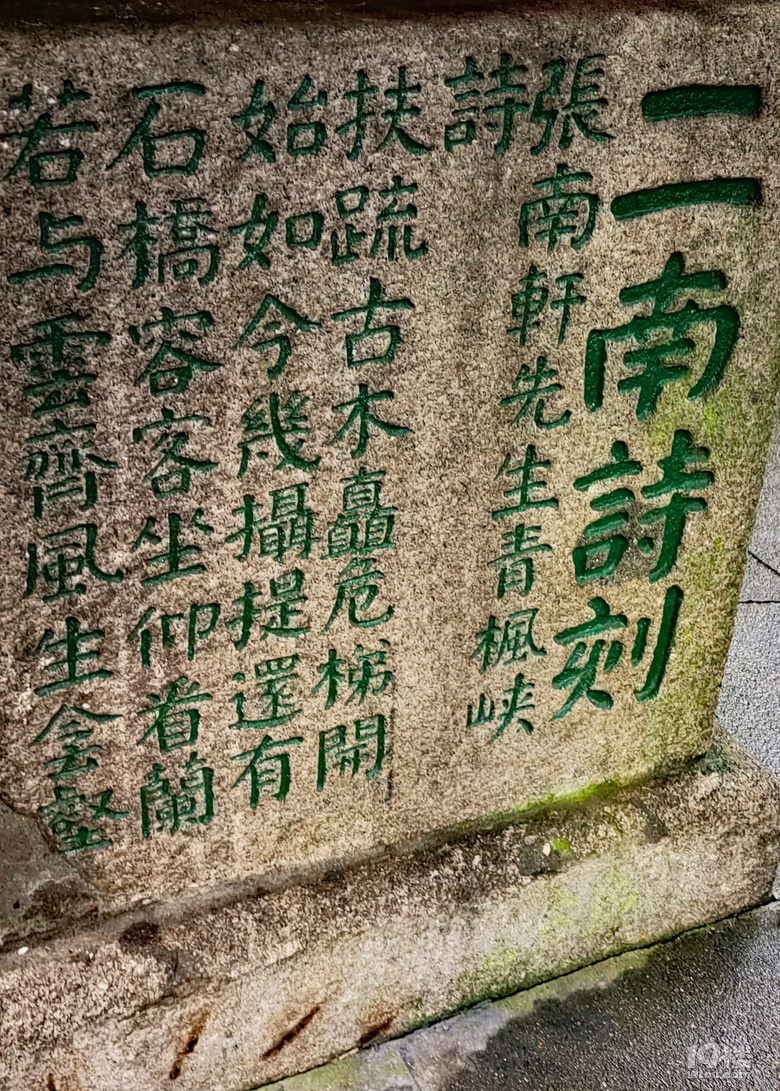 二南詩刻
張南軒先生青楓峡
詩
扶疏古木矗危梯開
始如今幾攝提還有
石橋容客坐仰看蘭
若与雲齊風生侌壑
19楼
19lou.com